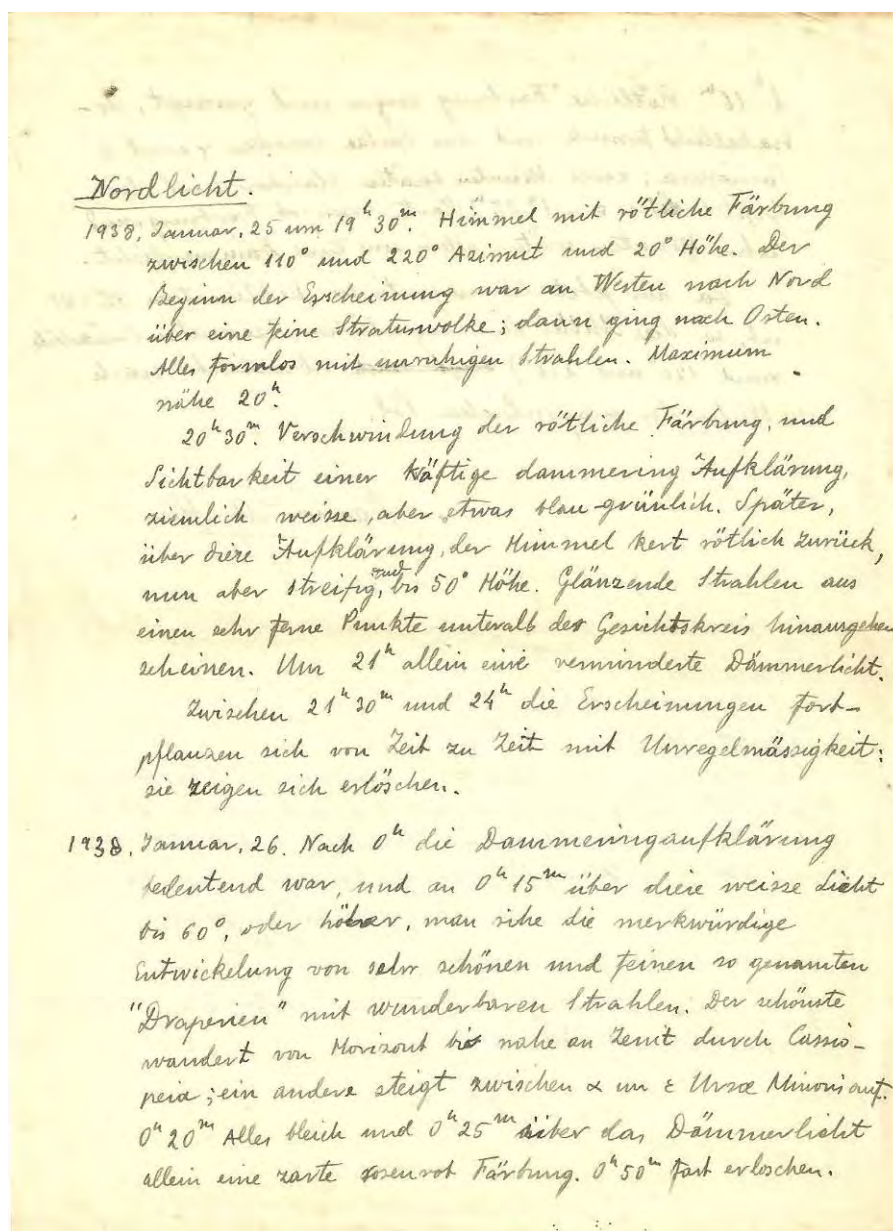 Nordlicht.
1938, Januar, 25 um 19ʰ 30ᵐ. Himmel mit rötliche Färbung
zwischen 110° und 220° Azimut und 20° Höhe. Der
Beginn der Erscheinung war an Westen nach Nord
über eine feine Stratuswolke; dann ging nach Osten.
Alles formlos mit unruhigen Strahlen. Maximum
nähe 20ʰ.
20ʰ 30ᵐ. Verschwindung der rötliche Färbung, und
Sichtbarkeit einer käftige dammering Aufklärung,
ziemlich weisse, aber etwas blau-grünlich. Später,
über diese Aufklärung, der Himmel kert rötlich zurück,
nun aber streifig, und bis 50° Höhe. Glänzende Strahlen aus
einen sehr ferne Punkte unteralb des Gesichtskreis hinausgehen
scheinen. Um 21ʰ allein eine verminderte Dämmerlicht.
Zwischen 21ʰ 30ᵐ und 24ʰ die Erscheinungen fort-
pflanzen sich von Zeit zu Zeit mit Unregelmässigkeit:
sie zeigen sich erlöschen.
1938, Januar, 26. Nach 0ʰ die Dammeringaufklärung
bedeutend war, und an 0ʰ 15ᵐ über diese weisse Licht
bis 60°, oder höher, man sihe die merkwürdige
Entwickelung von sehr schönen und feinen so genamten
"Draperien" mit wunderbaren Strahlen. Der schönste
wandert von Horizont bis nahe an Zenit durch Cassio-
peia; ein andere steigt zwischen α un ε Ursæ Minoris auf.
0ʰ 20ᵐ Alles bleich und 0ʰ 25ᵐ über das Dämmerlicht
allein eine zarte rosenrot Färbung. 0ʰ 50ᵐ fast erloschen.